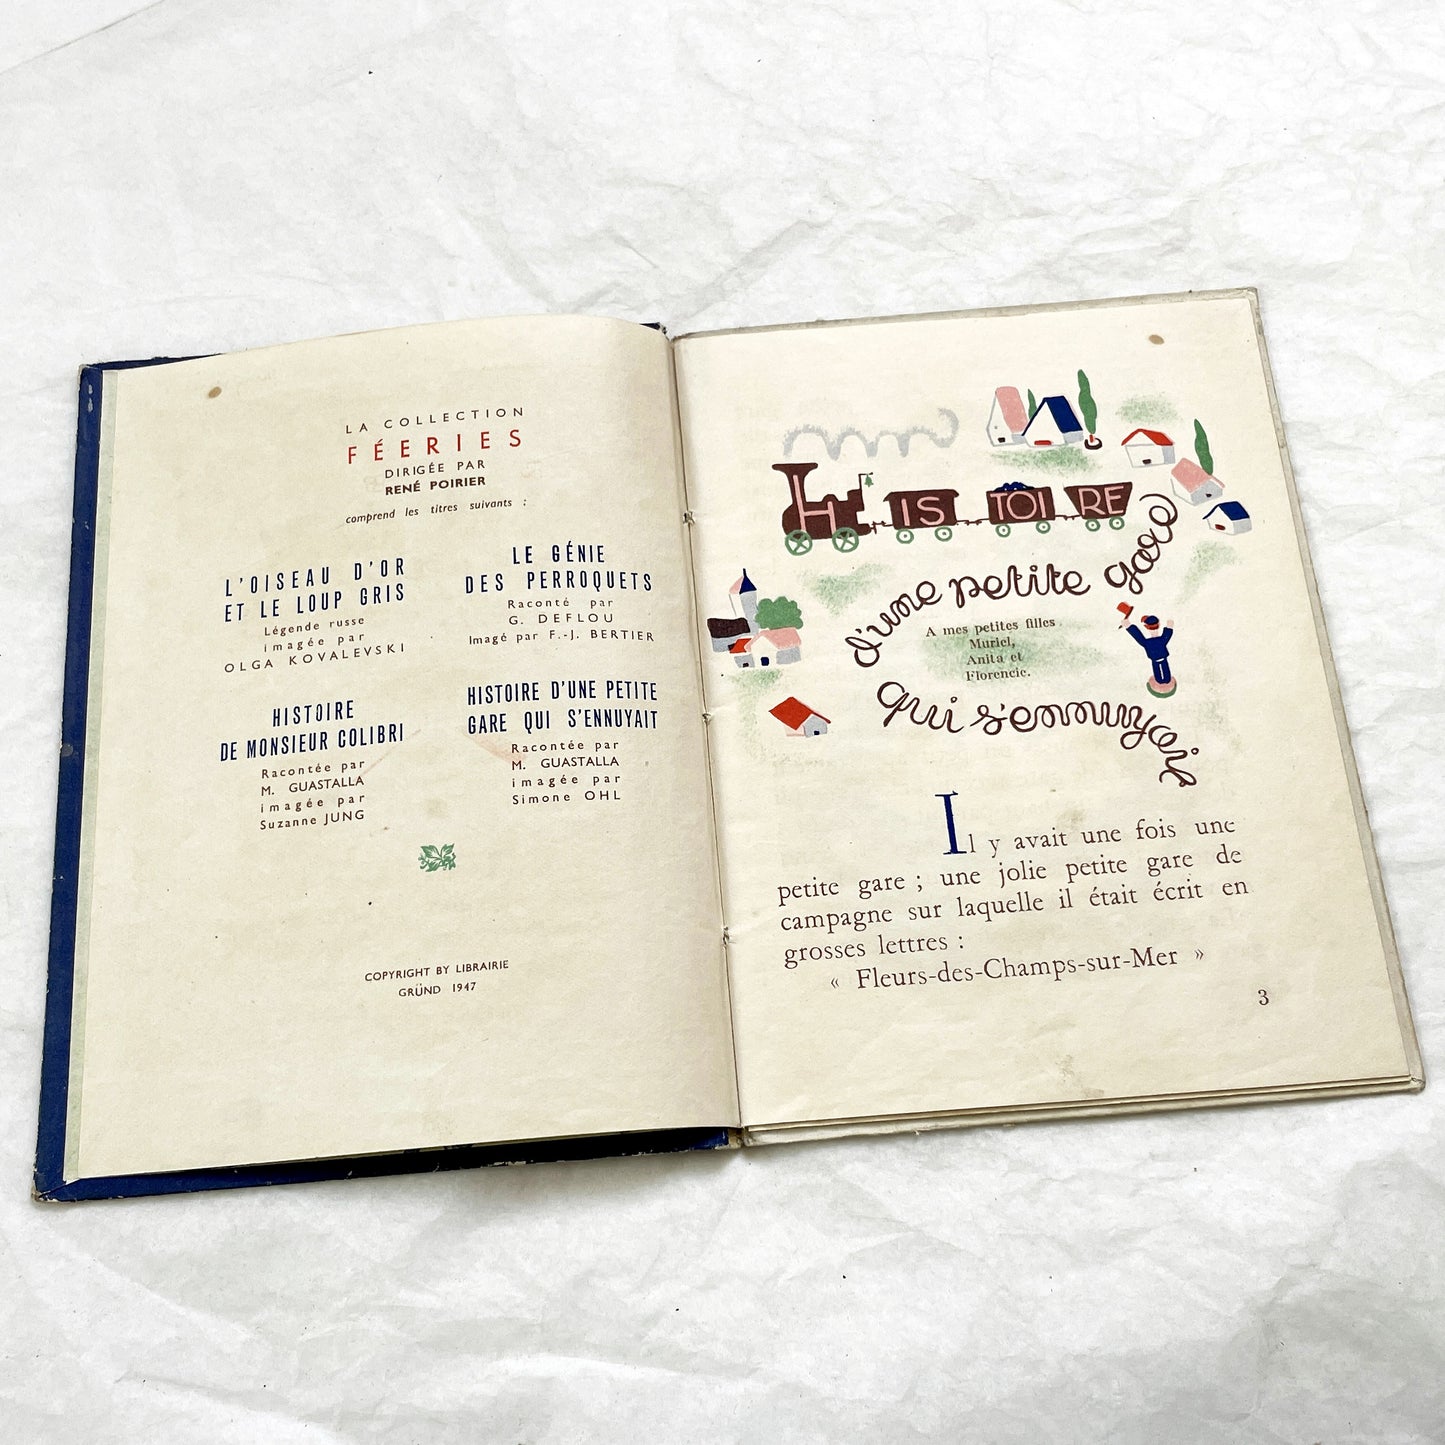 LA COLLECTION
FÉERIES
DIRIGÉE PAR
RENÉ POIRIER
comprend les titres suivants :
L'OISEAU D'OR
ET LE LOUP GRIS
Légende russe
imagée par
OLGA KOVALEVSKI
LE GÉNIE
DES PERROQUETS
Raconté par
G. DEFLOU
Imagé par F.-J. BERTIER
HISTOIRE
DE MONSIEUR COLIBRI
Racontée par
M. GUASTALLA
imagée par
Suzanne JUNG
HISTOIRE D'UNE PETITE
GARE QUI S'ENNUYAIT
Racontée par
M. GUASTALLA
imagée par
Simone OHL
COPYRIGHT BY LIBRAIRIE
GRÜND 1947
HISTOIRE
d'une petite gare
A mes petites filles
Muriel,
Anita et
Florencie.
qui s'ennuyait
Il y avait une fois une
petite gare ; une jolie petite gare de
campagne sur laquelle il était écrit en
grosses lettres :
« Fleurs-des-Champs-sur-Mer »
3